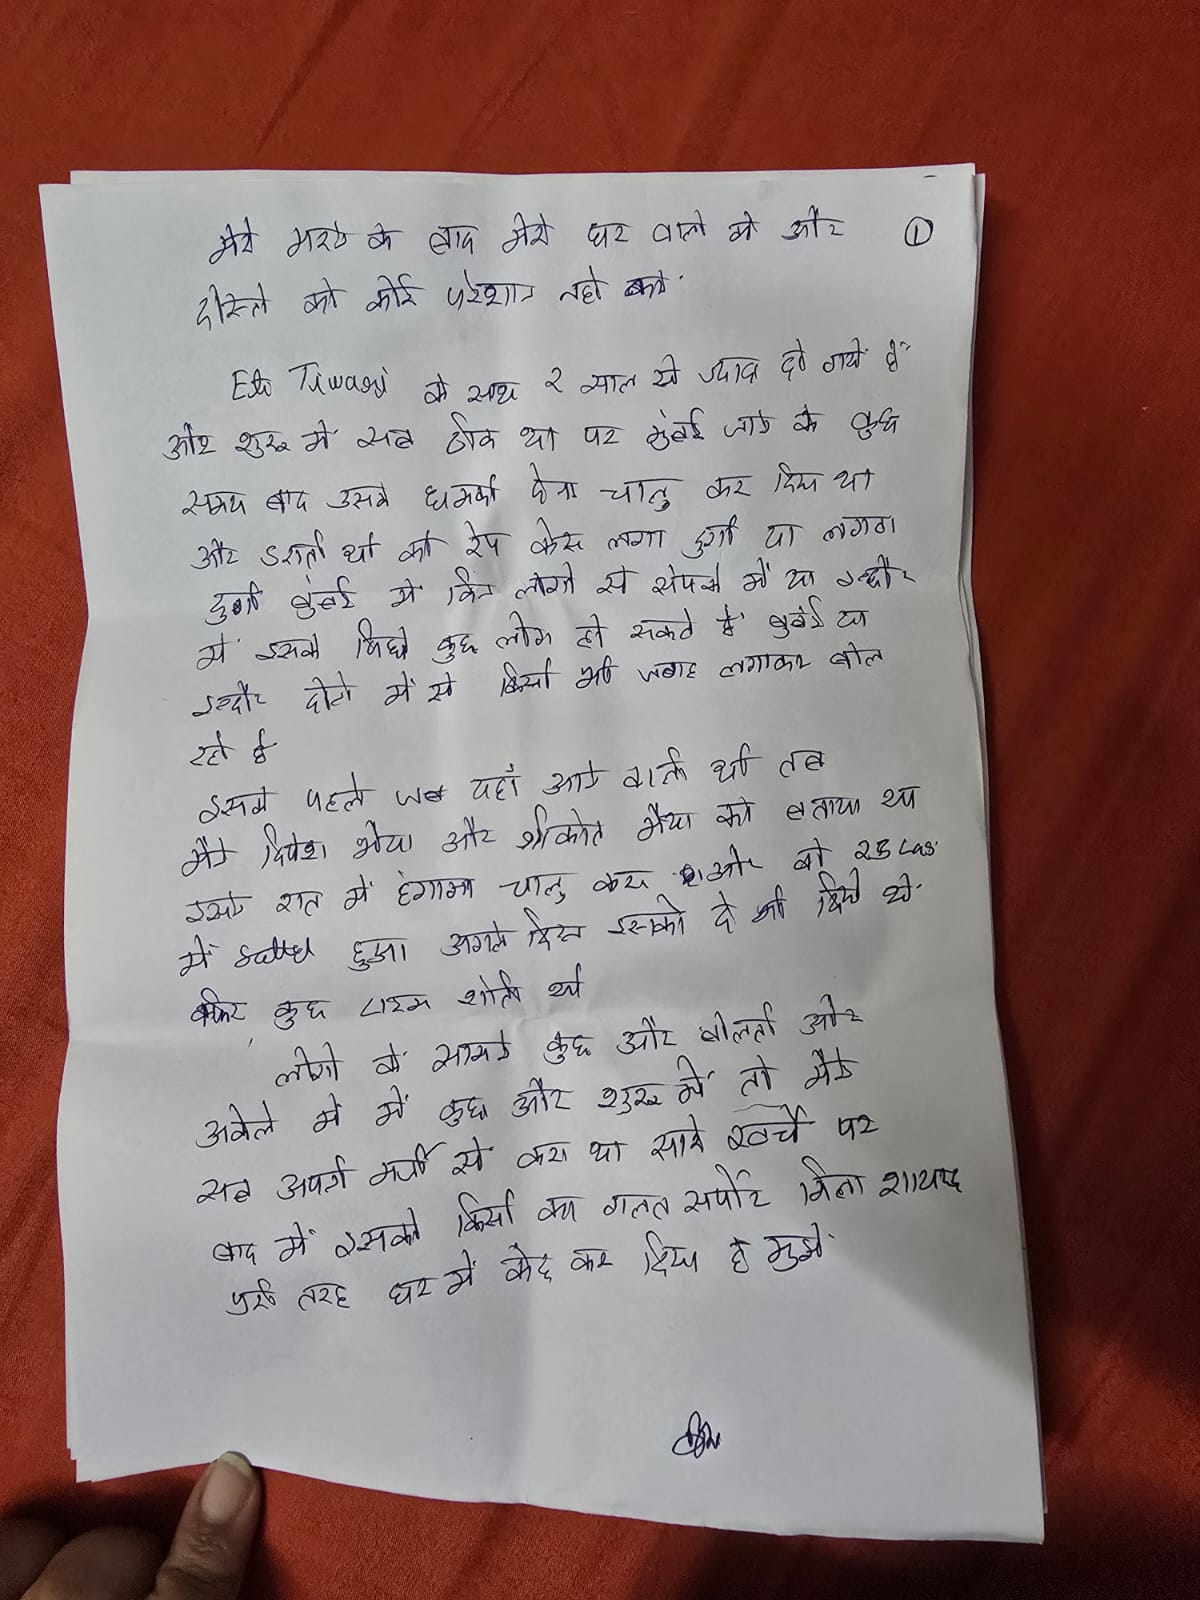 ①
मेरे मरने के बाद मेरे घर वाले को और
दोस्तो को कोई परेशान नही करे.
Tiwari के साथ 2 साल से ज्यादा हो गये हैं
और शुरू में सब ठीक था पर मुंबई जाने के कुछ
समय बाद उसने धमकी देना चालु कर दिया था
और डराती थी की रेप केस लगा दुगी या लगवा
दुगी मुंबई में किन लोगो से संपर्क में या इन्दौर
में इसके पिछे कुछ लोग हो सकते है मुंबई या
इन्दौर दोनो में से किसी भी जगह लगाकर बोल
रही है
इससे पहले जब यहाँ आने वाली थी तब
मैने दिपेश भैया और श्रीकांत भैया को बताया था
इसने रात में हंगामा चालु करा और वो 25 Las
में settel हुआ अगले दिन इसको दे भी दिये थे.
फिर कुछ टाइम शांती थी
लोगो के सामने कुछ और बोलती और
अकेले में में कुछ और शुरू में तो मैने
सब अपनी मर्जी से करा था सारे खर्चे पर
बाद में इसको किसी का गलत सपोर्ट मिला शायद
पुरी तरह घर में कैद कर दिया है मुझे.